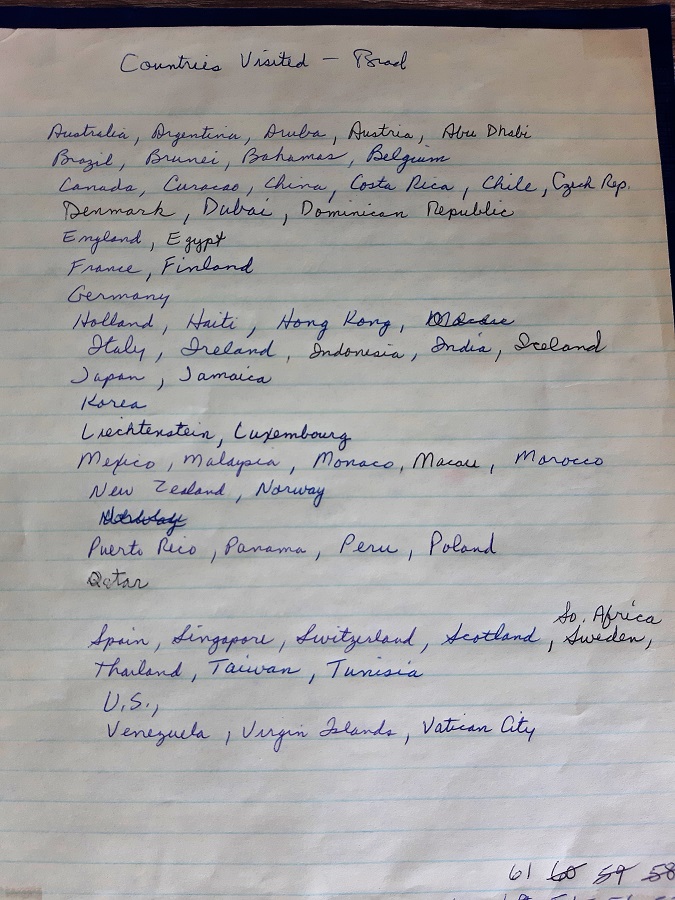 Countries Visited - Brad
Australia, Argentina, Aruba, Austria, Abu Dhabi
Brazil, Brunei, Bahamas, Belgium
Canada, Curacao, China, Costa Rica, Chile, Czch Rep.
Denmark, Dubai, Dominican Republic
England, Egypt
France, Finland
Germany
Holland, Haiti, Hong Kong,
Italy, Ireland, Indonesia, India, Iceland
Japan, Jamaica
Korea
Liechtenstein, Luxembourg
Mexico, Malaysia, Monaco, Macau, Morocco
New Zealand, Norway
Norway
Puerto Rico, Panama, Peru, Poland
Qatar
So. Africa
Spain, Singapore, Switzerland, Scotland, Sweden,
Thailand, Taiwan, Tunisia
U.S.,
Venezuela, Virgin Islands, Vatican City
61 60 59 58